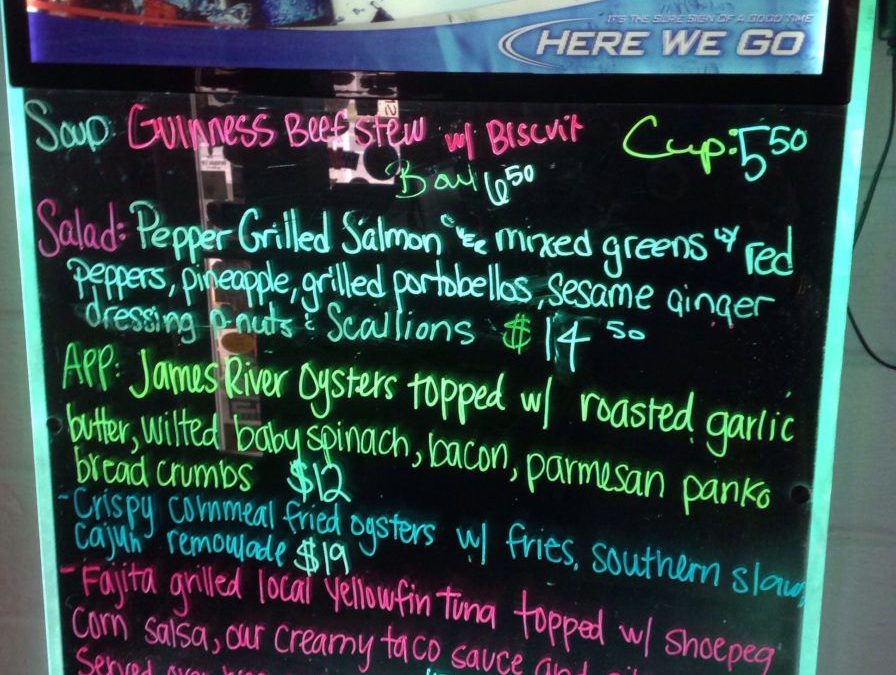 IT'S THE SURE SIGN OF A GOOD TIME
HERE WE GO
Soup Guinness Beef stew w/ Biscuit Cup: 5 50
Bowl 6 50
Salad: Pepper Grilled Salmon over mixed greens w/ red
peppers, pineapple, grilled portobellos, sesame ginger
dressing p-nuts & Scallions $14 50
APP: James River Oysters topped w/ roasted garlic
butter, wilted baby spinach, bacon, parmesan panko
bread crumbs $12
- Crispy cornmeal fried oysters w/ fries, southern slaw,
cajun remoulade $19
- Fajita grilled local yellowfin tuna topped w/ shoepeg
Corn salsa, our creamy taco sauce and
Served over